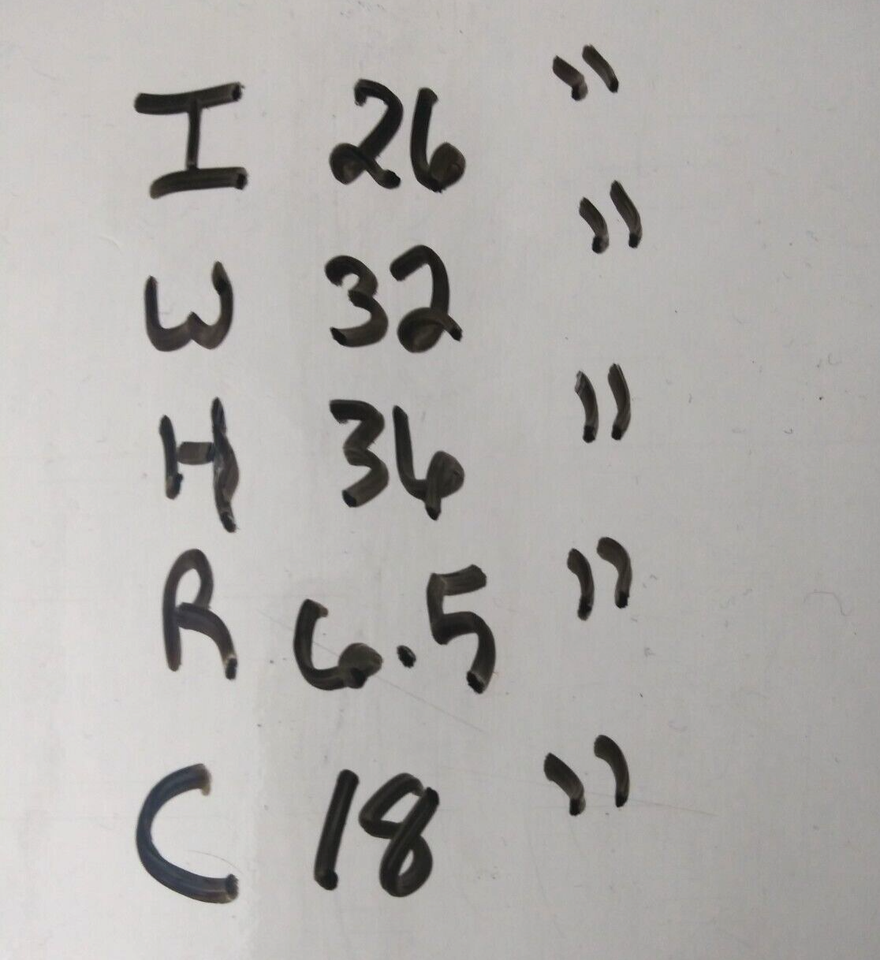 I 26 "
W 32 "
H 36 "
R 6.5 "
C 18 "